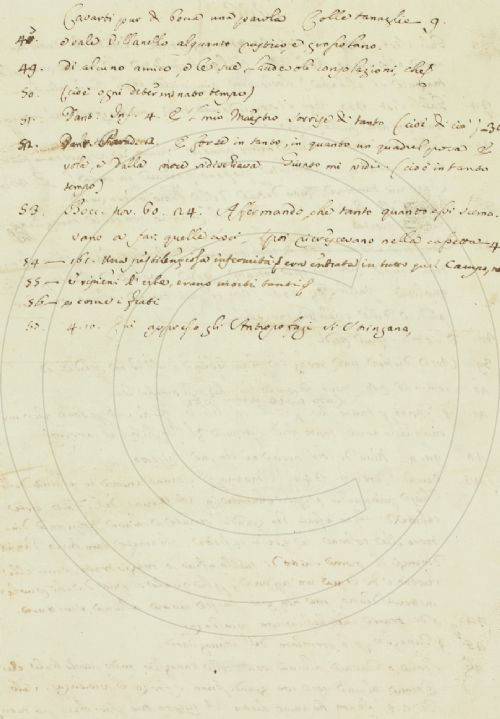 Cavarti pur di bocca una parola Colle tanaglie 9.
48. ovale dell'anello alquanto rustico, e grossolano.
49. di alcuno amico, e le sue laude oli consolazioni, che
50. (cioè ogni determinato tempo)
51. Dant. Inf. 4. E 'l mio Maestro sorrise di tanto (cioè di ciò)
52. Dant. Parad. 2. E forse in tanto, in quanto un quadrel posa E
vola, e dalla noce si dischiava Giunto mi vidi (cioè in tanto
tempo)
53. Bocc. nov. 60. 24. Affermando, che tanto quanto essi scema-
vano a far quelle croci, poi ricrescevano nella cassetta 4
54 — 161. Una pestilenziosa infermità era entrata in tutto quel Campo,
55 — e ripieni di erbe, erano morti tanti
56 — o come i frati
50. 4. 10. appresso gli Antropofagi